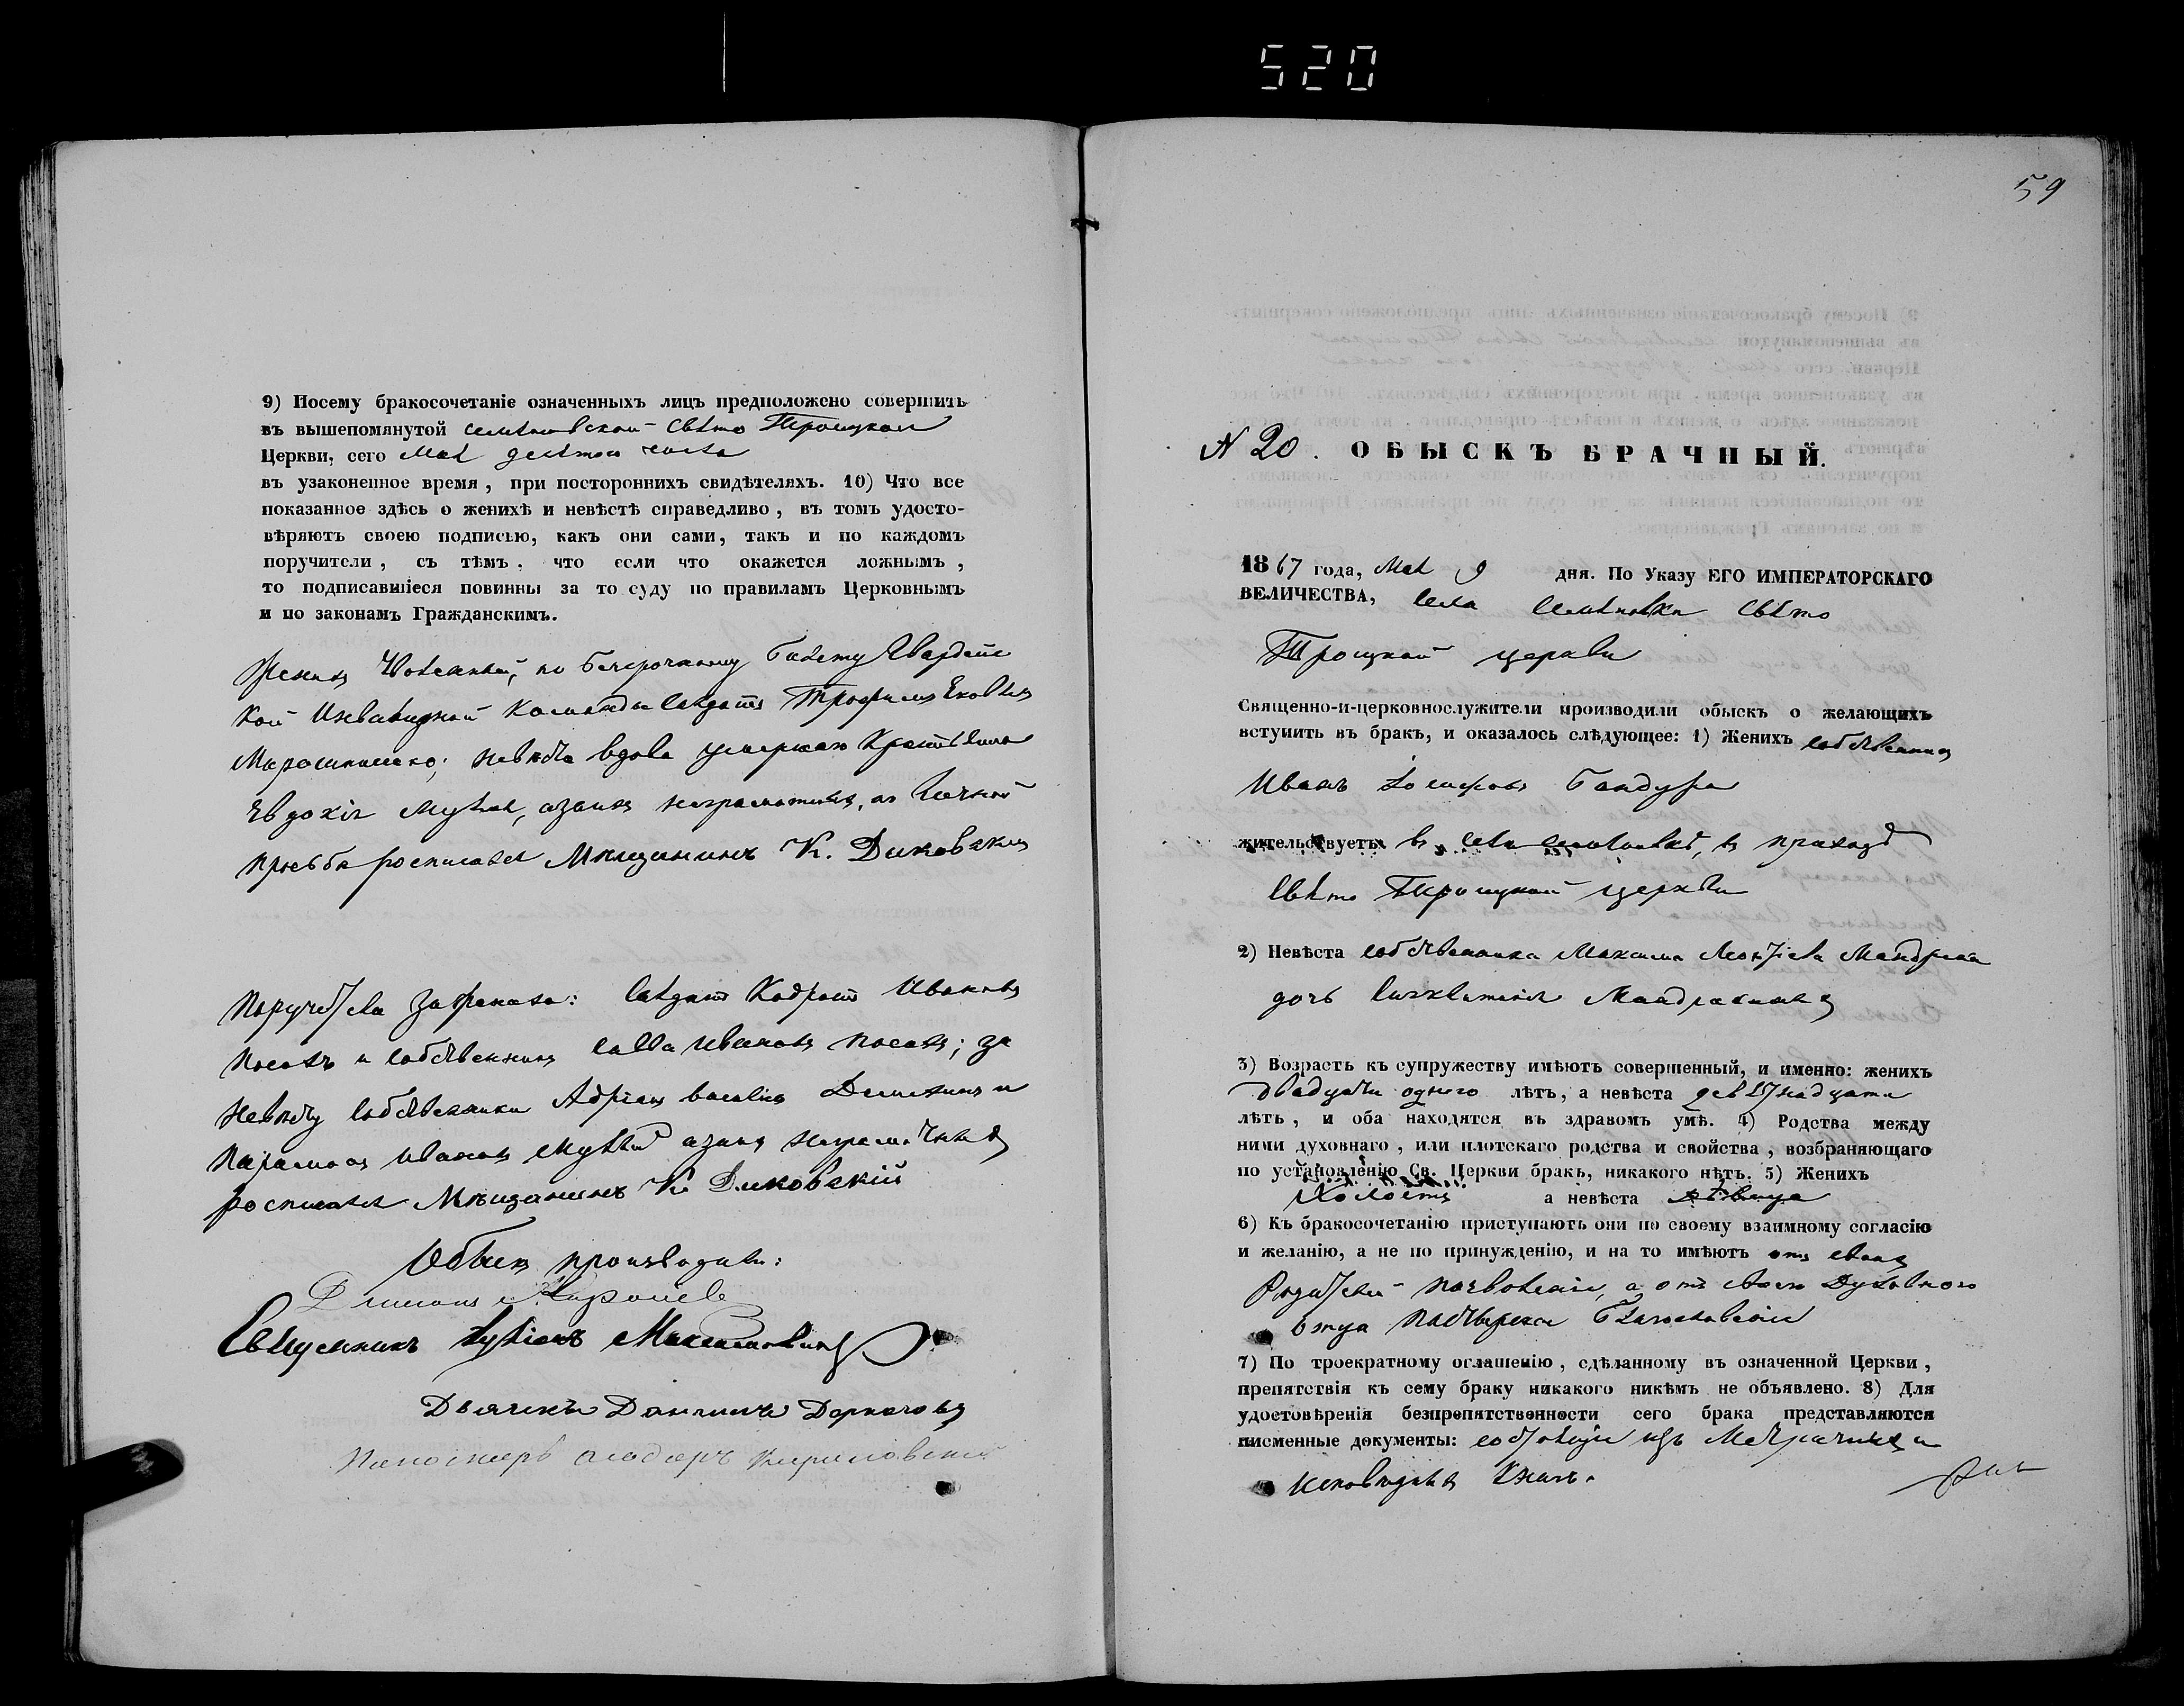 520
9) Посему бракосочетаніе означенныхъ лицъ предположено совершить
въ вышепомянутой Семеновской Свято Троицкой
Церкви, сего Мая девятого числа
въ узаконенное время, при постороннихъ свидѣтеляхъ. 10) Что все
показанное здѣсь о женихѣ и невѣстѣ справедливо, въ томъ удосто-
вѣряютъ своею подписью, какъ они сами, такъ и по каждомъ
поручители, съ тѣмъ, что если что окажется ложнымъ,
то подписавшіеся повинны за то суду по правиламъ Церковнымъ
и по законамъ Гражданскимъ.
Женихъ уволенный, по безсрочному билету
кой Инвалидной команды солдатъ Трофимъ Яковлевъ
невѣста вдова умершаго
Евдокія а за ихъ неграмотныхъ, по личной
прозьбѣ росписался Мѣщанинъ К. Диковскій
Поручители за жениха: солдатъ Иванъ
и собственникъ Савва Ивановъ за
невѣсту собственники Адріанъ Василіевъ и
Ивановъ а за ихъ неграмотныхъ
росписался Мѣщанинъ К. Диковскій
Обыскъ производили:
Священникъ Максимовичъ
Дьячекъ Даніилъ Деркачовъ
Пономарь
59
N 20. ОБЫСКЪ БРАЧНЫЙ.
1867 года, Мая 9 дня. По Указу ЕГО ИМПЕРАТОРСКАГО
ВЕЛИЧЕСТВА, села Семеновки Свято
Троицкой церкви
Священно-и-церковнослужители производили обыскъ о желающихъ
вступить въ бракъ, и оказалось слѣдующее: 1) Женихъ собственникъ
Иванъ Іосифовъ Бандура
жительствуетъ въ селѣ Семеновкѣ, въ приходѣ
Свято Троицкой церкви
2) Невѣста собственника Максима Леонтіева
дочь
3) Возрастъ къ супружеству имѣютъ совершенный, и именно: женихъ
двадцати одного лѣтъ, а невѣста девятнадцати
лѣтъ, и оба находятся въ здравомъ умѣ. 4) Родства между
ними духовнаго, или плотскаго родства и свойства, возбраняющаго
по установленію Св. Церкви бракъ, никакого нѣтъ. 5) Женихъ
Холостъ а невѣста дѣвица
6) Къ бракосочетанію приступаютъ они по своему взаимному согласію
и желанію, а не по принужденію, и на то имѣютъ отъ своихъ
Родителей позволеніе, а отъ своего Духовного
Отца Пастырское Благословеніе
7) По троекратному оглашенію, сдѣланному въ означенной Церкви,
препятствія къ сему браку никакого никѣмъ не объявлено. 8) Для
удостовѣренія безпрепятственности сего брака представляются
писменные документы: состоящіе изъ Метрическихъ и
исповѣдныхъ книгъ.